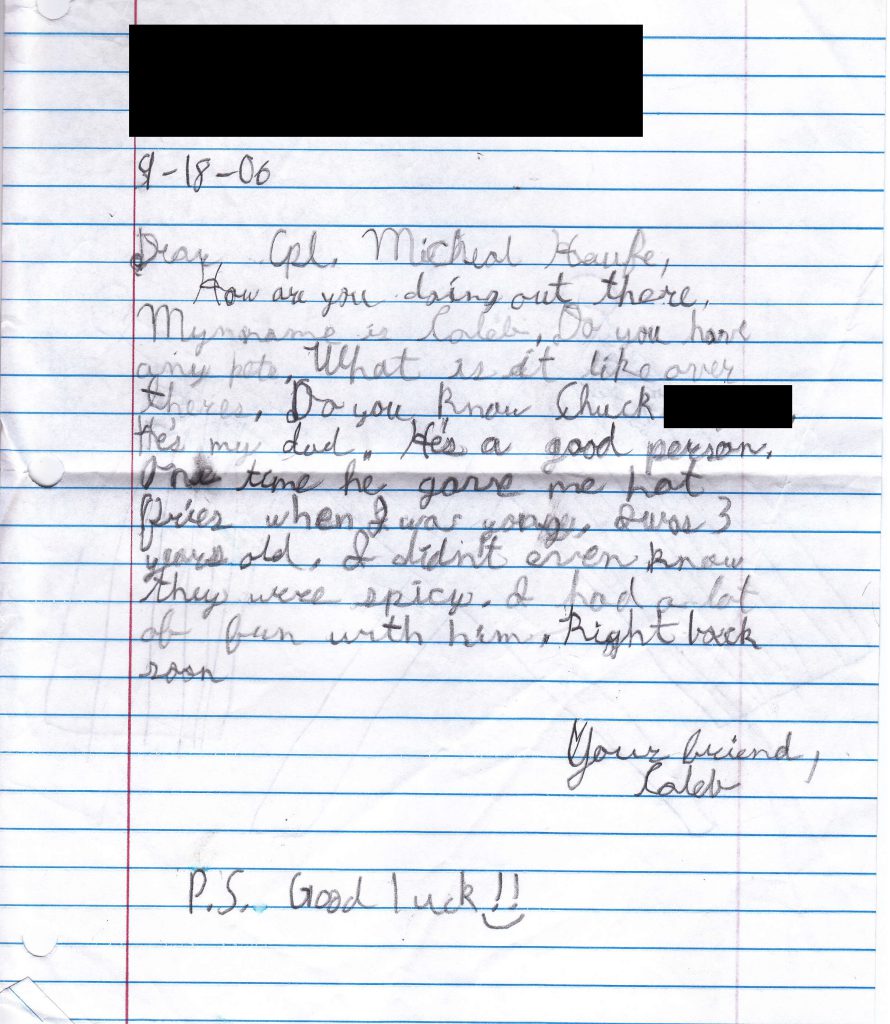 9-18-06
Dear Cpl. Micheal Haufe,
How are you doing out there.
My name is Caleb, Do you have
any pets, What is it like over
there, Do you know Chuck
He's my dad. He's a good person.
One time he gave me hot
fries when I was young, I was 3
years old. I didn't even know
they were spicy. I had a lot
of fun with him. Right back
soon
Your friend,
Caleb
P.S. Good luck!!